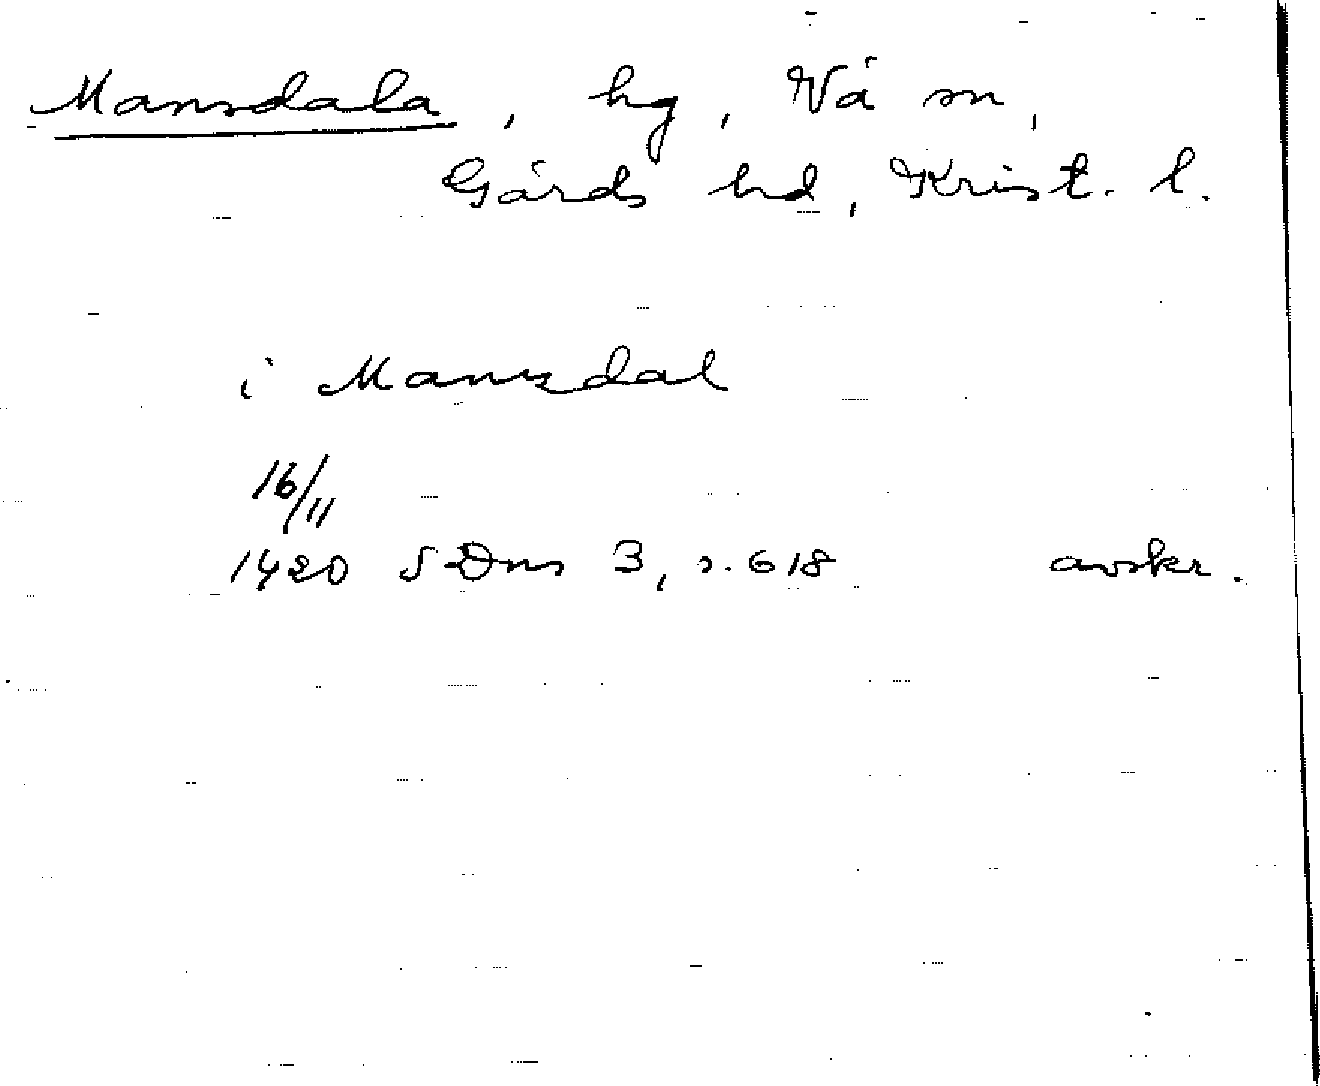 Mansdala, hg, Vä sn,
Gärds hd, Krist. l.
i Manzdal
16/11
1420 SDns 3, s. 618 avskr.